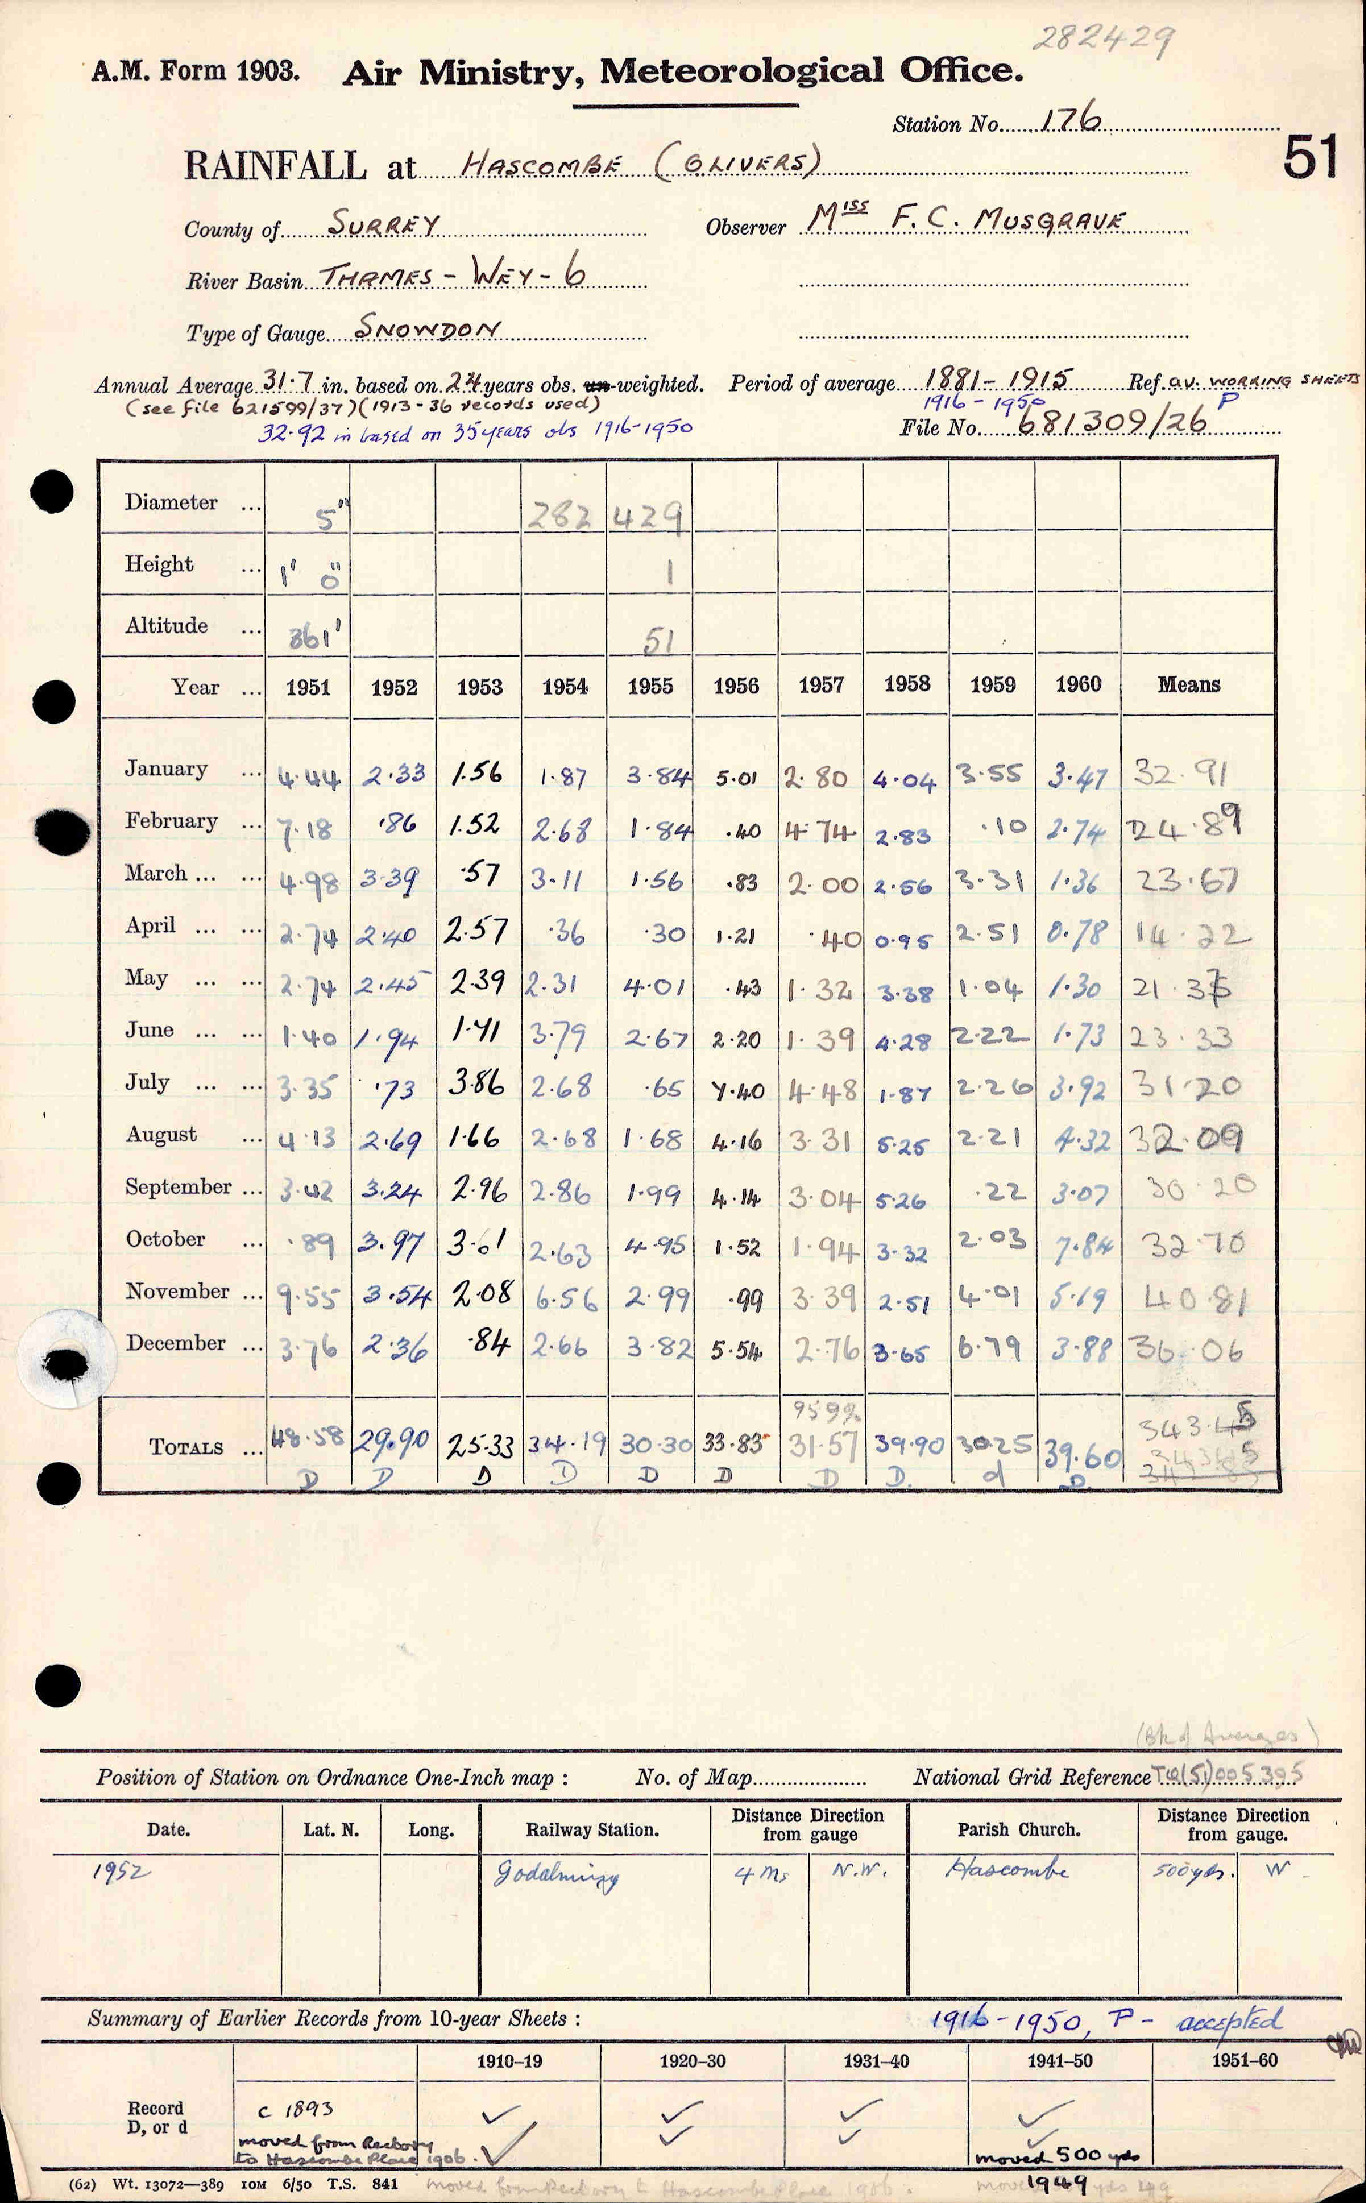 282429
A.M. Form 1903. Air Ministry, Meteorological Office.
Station No. 176
51
RAINFALL at HASCOMBE (OLIVERS)
County of SURREY Observer Miss F. C. MUSGRAVE
River Basin THAMES - WEY - 6
Type of Gauge SNOWDON
Annual Average 31·7 in. based on 24 years obs. un-weighted. Period of average 1881-1915 Ref. av. WORKING SHEETS
(see file 621599/37) (1913-36 records used) 1916-1950 P
32·92 in based on 35 years obs 1916-1950 File No. 681309/26
Diameter ... 5" 282 429
Height ... 1' 0" 1
Altitude ... 361' 51
Year ... 1951 1952 1953 1954 1955 1956 1957 1958 1959 1960 Means
January ... 4·44 2·33 1·56 1·87 3·84 5·01 2·80 4·04 3·55 3·47 32·91
February ... 7·18 ·86 1·52 2·68 1·84 ·40 4·74 2·83 ·10 2·74 24·89
March ... ... 4·98 3·39 ·57 3·11 1·56 ·83 2·00 2·56 3·31 1·36 23·67
April ... ... 2·74 2·40 2·57 ·36 ·30 1·21 ·40 0·95 2·51 0·78 14·22
May ... ... 2·74 2·45 2·39 2·31 4·01 ·43 1·32 3·38 1·04 1·30 21·37
June ... ... 1·40 1·94 1·41 3·79 2·67 2·20 1·39 4·28 2·22 1·73 23·33
July ... ... 3·35 ·73 3·86 2·68 ·65 7·40 4·48 1·87 2·26 3·92 31·20
August ... 4·13 2·69 1·66 2·68 1·68 4·16 3·31 5·25 2·21 4·32 32·09
September ... 3·42 3·24 2·96 2·86 1·99 4·14 3·04 5·26 ·22 3·07 30·20
October ... ·89 3·97 3·61 2·63 4·95 1·52 1·94 3·32 2·03 7·84 32·70
November ... 9·55 3·54 2·08 6·56 2·99 ·99 3·39 2·51 4·01 5·19 40·81
December ... 3·76 2·36 ·84 2·66 3·82 5·54 2·76 3·65 6·79 3·88 36·06
95 9%
TOTALS ... 48·58 29·90 25·33 34·19 30·30 33·83 31·57 39·90 30·25 39·60 343·45
D D D D D D D D. d D
(Bk of Averages)
Position of Station on Ordnance One-Inch map : No. of Map National Grid Reference TQ(51)005395
Date. Lat. N. Long. Railway Station. Distance Direction from gauge Parish Church. Distance Direction from gauge.
1952 Godalming 4 Ms N.W. Hascombe 500 yds. W
Summary of Earlier Records from 10-year Sheets : 1916-1950, P - accepted
1910–19 1920–30 1931–40 1941–50 1951–60
Record D, or d c 1893 ✓ ✓ ✓ ✓
moved from Rectory to Hascombe Place 1906. ✓ ✓ ✓ ✓ moved 500 yds
1949
(62) Wt. 13072—389 10M 6/50 T.S. 841 moved from Rectory to Hascombe Place 1906.